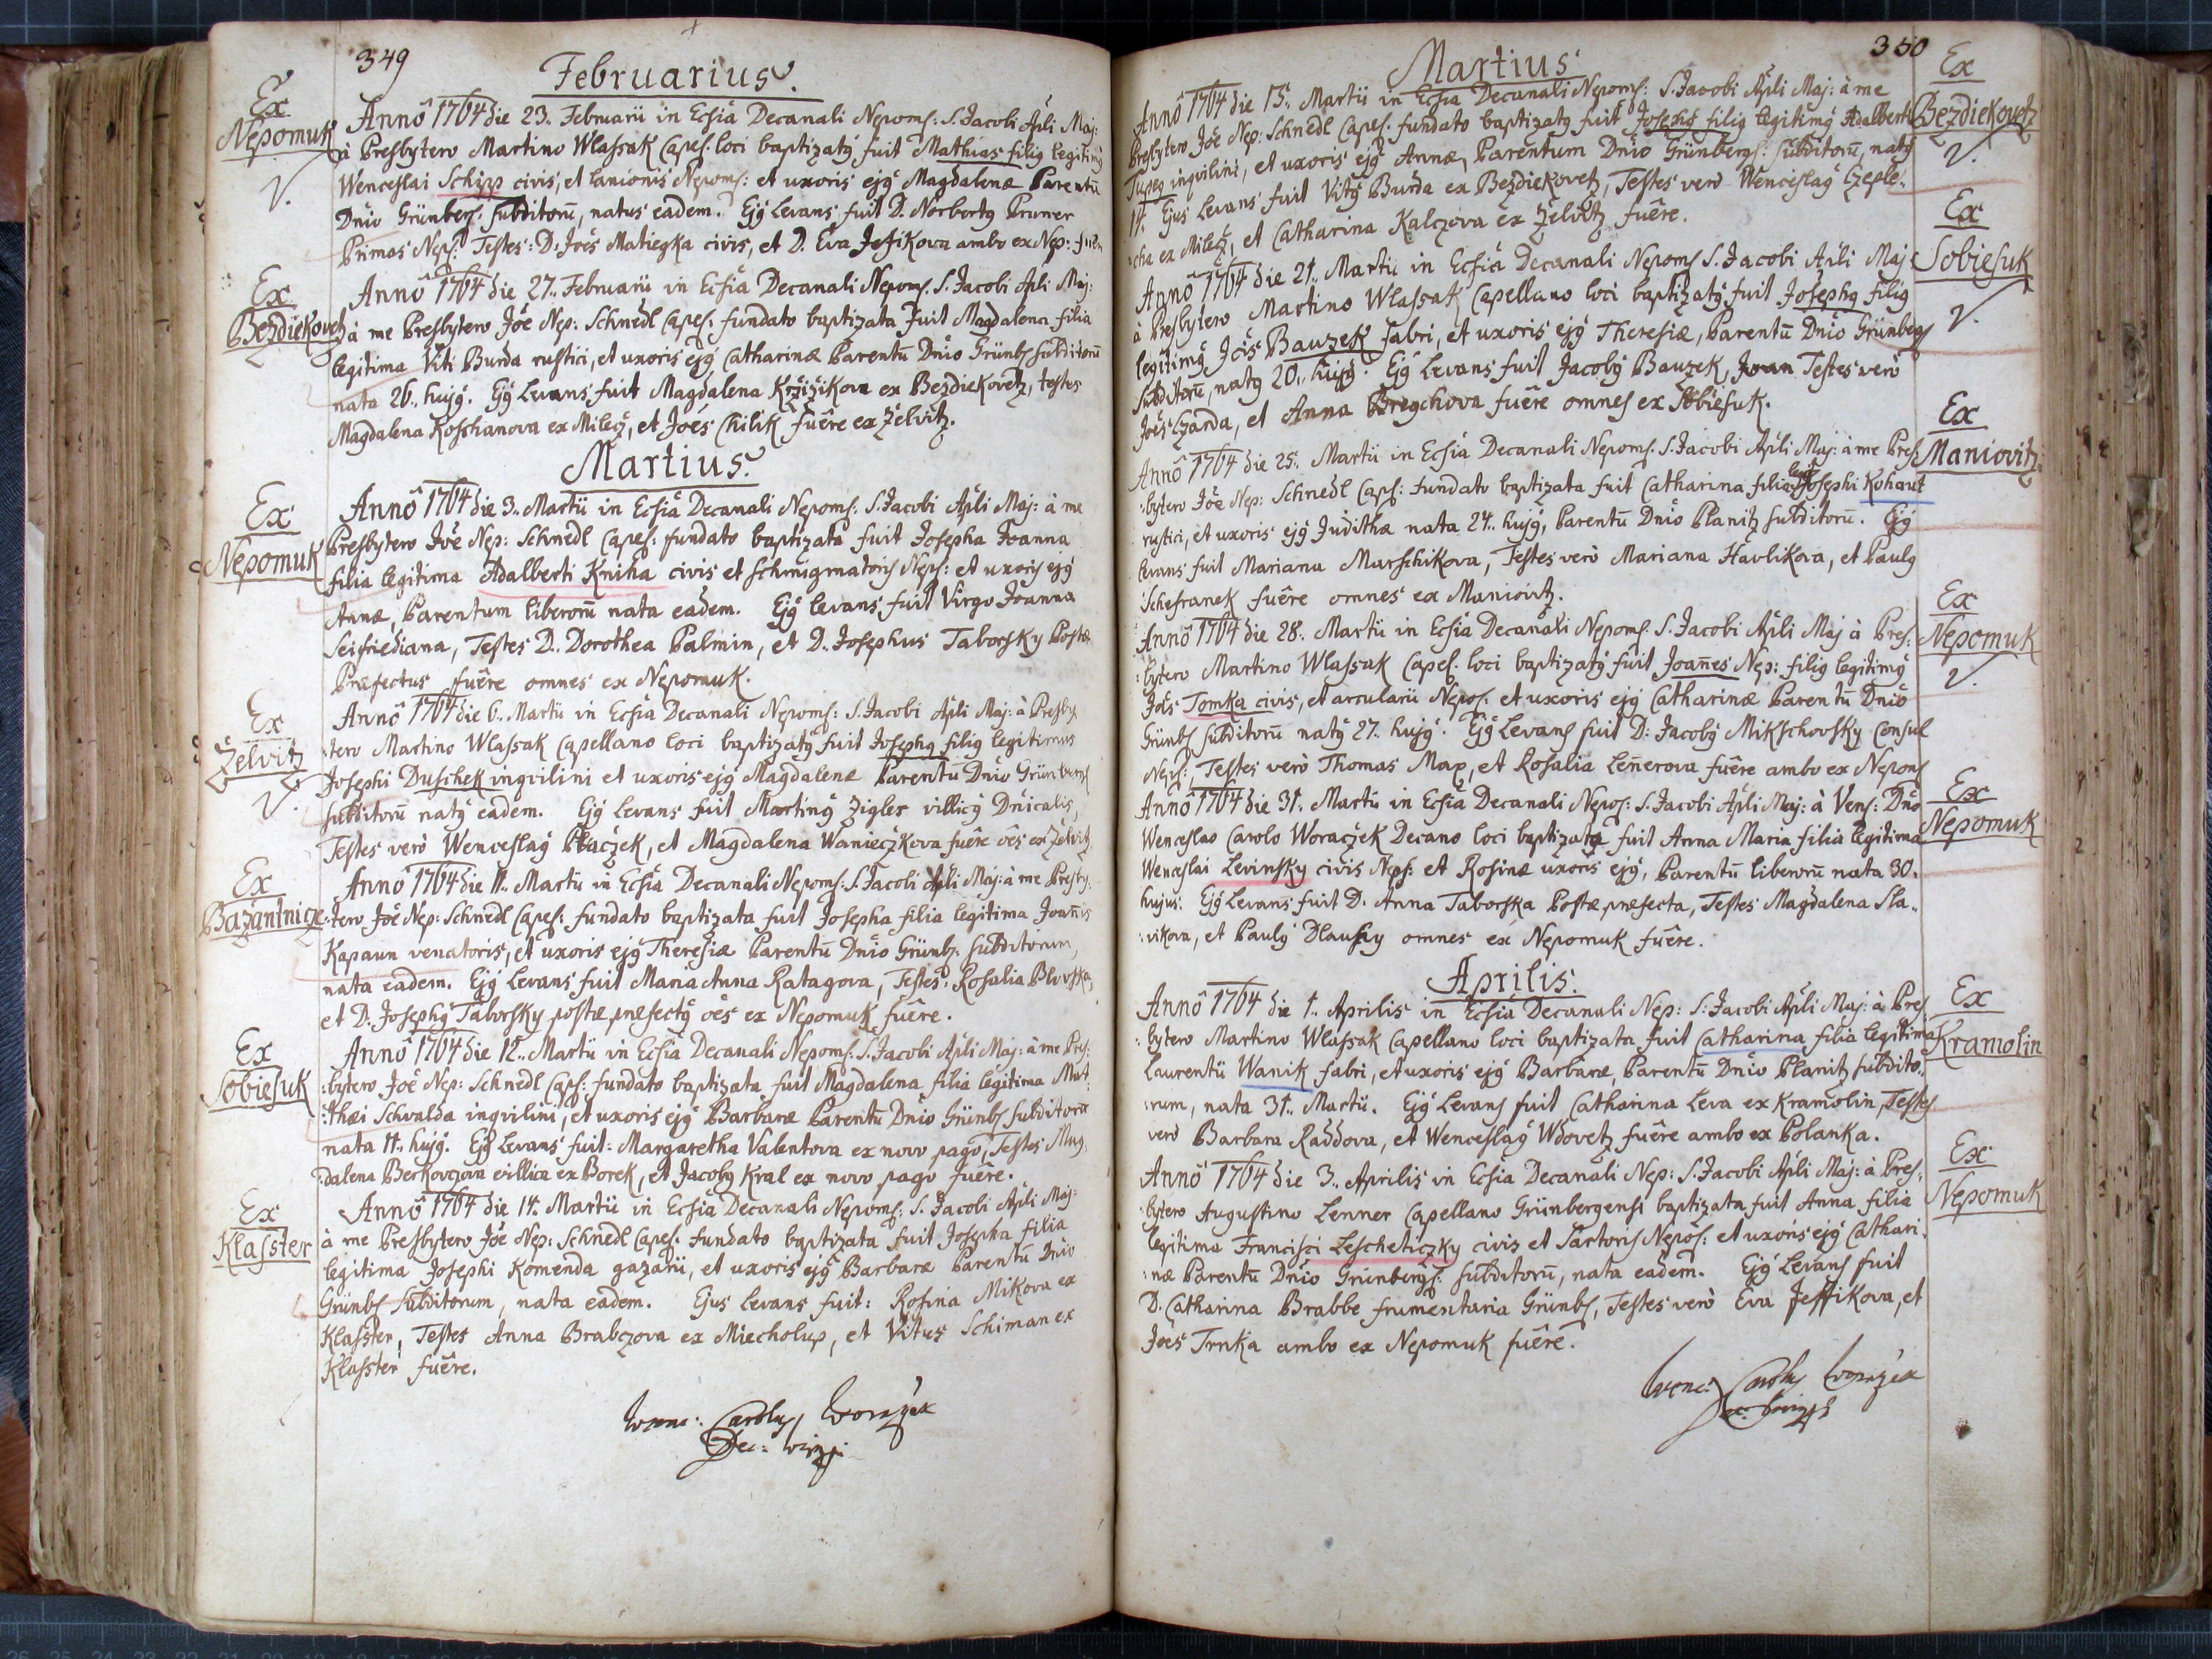 349
Februarius.
Ex
Nepomuk
Annô 1764 die 23. Februarii in Ecsia Decanali Nepoms: S. Jacobi Apli Maj:
à Presbytero Martino Wlassak Capel. loci baptizatg fuit Mathias filig legitimg
Wenceslai Schipp civis, et lanionis Nepoms: et uxoris ejg Magdalenæ Parentū
Dnio Grünbers: subditorū, natus eadem. Ejg Levans fuit D. Norbertg Pruner
Primas Neps: Testes: D: Joes Matiegka civis, et D. Eva Jessikova ambo ex Nep:
Ex
Bezdiekovetz
Annô 1764 die 27. Februarii in Ecsia Decanali Nepoms. S. Jacobi Apli Maj:
à me Presbytero Jôe Nep: Schnedl Capes. fundato baptizata fuit Magdalena filia
legitima Viti Burda rustici, et uxoris ejg Catharinæ Parentū Dnio Grünbs subditorū
nata 26. hujg. Ejg Levans fuit Magdalena Krzizikova ex Bezdiekovetz, testes
Magdalena Koschanova ex Milecz, et Joés Chilik fuêre ex Zelvitz.
Martius.
Ex
Nepomuk
Annô 1764 die 3. Martii in Ecsia Decanali Nepoms: S. Jacobi Apli Maj: à me
Presbytero Jôe Nep: Schnedl Capes: fundato baptizata fuit Josepha Joanna
filia legitima Adalberti Kniha civis et schmigmatoris Neps: et uxoris ejg
Annæ, Parentum liberorū nata eadem. Ejg levans fuit Virgo Joanna
Seifriediana, Testes D. Dorothea Palmin, et D. Josephus Taborsky Postæ
Præfectus fuêre omnes ex Nepomuk.
Ex
Zelvitz
Annô 1764 die 6. Martii in Ecsia Decanali Nepoms: S. Jacobi Apli Maj: à Presby
:tero Martino Wlassak Capellano loci baptizatg fuit Josephg filig legitimus
Josephi Duschek inqvilini et uxoris ejg Magdalenæ Parentū Dnio Grünbergs
subditorū natg eadem. Ejg Levans fuit Marting Zigler villicg Dnicalis,
Testes verò Wenceslag Placzek, et Magdalena Wanieczkova fuêre oes ex Zelvitz
Ex
Bazantnicze
Annô 1764 die 11. Martii in Ecsia Decanali Nepoms: S. Jacobi Apli Maj: à me Presby:
:tero Jôe Nep: Schnedl Capes: fundato baptizata fuit Josepha filia legitima Joañis
Kapaun venatoris, et uxoris ejg Theresiæ Parentū Dnio Grünbs: subditorum,
nata eadem. Ejg Levans fuit Maria Anna Ratagova, Testes: Rosalia
et D: Josephg Taborsky postæ præfectg oes ex Nepomuk fuêre.
Ex
Sobiesuk
Annô 1764 die 12. Martii in Ecsia Decanali Nepoms: S. Jacobi Apli Maj: à me Pres:
:bytero Joé Nep: Schnedl Caps: fundato baptizata fuit Magdalena filia legitima Mat
:thæi Schwalda inqvilini, et uxoris ejg Barbaræ Parentū Dnio Grünbs subditorū
nata 11. hujg. Ejg Levans fuit: Margaretha Valentova ex novo pago, Testes Mag
:dalena Berkovczova villica ex Borek, et Jacobg Kral ex novo pago fuêre.
Ex
Klaster
Annô 1764 die 14. Martii in Ecsia Decanali Nepoms: S. Jacobi Apli Maj:
à me Presbytero Jôe Nep: Schnedl Capes. fundato baptizata fuit Josepha filia
legitima Josephi Komenda gazarii, et uxoris ejg Barbaræ Parentū Dnio
Grünbs subditorum, nata eadem. Ejus Levans fuit: Rosina Mikova ex
Klaster, Testes Anna Brabczova ex Miecholup, et Vitus Schiman ex
Klaster fuêre.
Wenc: Carolus Woraczek
350
Martius
Ex
Bezdiekovetz
Annô 1764 die 15. Martii in Ecsia Decanali Nepoms: S. Jacobi Apli Maj: à me
Presbytero Jôe Nep: Schnedl Capes. fundato baptizatg fuit Josephg filig legitimg Adalberti
Tupeg inqvilini, et uxoris ejg Annæ, Parentum Dnio Grünbergs: subditorū, natg
14. Ejus Levans fuit Vitg Burda ex Bezdiekovetz, Testes verò Wenceslag Czeple:
:cha ex Milecz, et Catharina Kalczova ex Zelvitz fuêre.
Ex
Sobiesuk
Annô 1764 die 21. Martii in Ecsia Decanali Nepoms S. Jacobi Apli Maj:
à Presbytero Martino Wlassak Capellano loci baptizatg fuit Josephg filig
legitimg Joés Bauzek fabri, et uxoris ejg Theresiæ, Parentū Dnio Grünbergs
subditorū, natg 20. hujg. Ejg Levans fuit Jacobg Bauzek, Testes verò
Joés Czarda, et Anna Bregchova fuêre omnes ex Sobiesuk.
Ex
Maniovitz
Annô 1764 die 25. Martii in Ecsia Decanali Nepoms: S. Jacobi Apli Maj: à me Pres
:bytero Jôe Nep: Schnedl Caps: fundato baptizata fuit Catharina filia Josephi Kohaut
rustici, et uxoris ejg Judithæ nata 24. hujg, Parentū Dnio Planitz subditorū. Ejg
levans fuit Mariana Marschikova, Testes verò Mariana Havlikova, et Paulg
Schefranek fuêre omnes ex Maniovitz.
Ex
Nepomuk
Annô 1764 die 28. Martii in Ecsia Decanali Nepoms: S. Jacobi Apli Maj à Pres:
:bytero Martino Wlassak Capes. loci baptizatg fuit Joañes Nep: filig legitimg
Joés Tomka civis, et arcularii Nepos: et uxoris ejg Catharinæ Parentū Dnio
Grünbs subditorū natg 27. hujg. Ejg Levans fuit D: Jacobg Mikschovsky Consul
Neps:, Testes verò Thomas Max, et Rosalia Leñerova fuêre ambo ex Nepoms
Ex
Nepomuk
Annô 1764 die 31. Martii in Ecsia Decanali Nepos: S. Jacobi Apli Maj: à Vens: Dno
Wenceslao Carolo Woraczek Decano loci baptizata fuit Anna Maria filia legitima
Wenceslai Levinsky civis Neps: et Rosinæ uxoris ejg, Parentū liberorū nata 30.
hujus. Ejg Levans fuit D: Anna Taborska Postæ præfecta, Testes Magdalena Sla..
:vikova, et Paulg Dlauhy omnes ex Nepomuk fuêre.
Aprilis.
Ex
Kramolin
Annô 1764 die 1. Aprilis in Ecsia Decanali Nep: S: Jacobi Apli Maj: à Pres
:bytero Martino Wlassak Capellano loci baptizata fuit Catharina filia legitima
Laurentii Wanik fabri, et uxoris ejg Barbaræ, Parentū Dnio Planitz subdito:
:rum, nata 31. Martii. Ejg Levans fuit Catharina Leva ex Kramolin, Testes
verò Barbara Raddova, et Wenceslag Wdovetz fuêre ambo ex Polanka.
Ex
Nepomuk
Annô 1764 die 3. Aprilis in Ecsia Decanali Nep: S. Jacobi Apli Maj: à Pres:
:bytero Augustino Lenner Capellano Grünbergensi baptizata fuit Anna filia
legitima Francisci Lescheticzky civis et Sartoris Nepos: et uxoris ejg Cathari:
:næ Parentū Dnio Grünbergs: subditorū, nata eadem. Ejg Levans fuit
D. Catharina Brabbe frumentaria Grünbs, Testes verò Eva Jessikova, et
Joes Trnka ambo ex Nepomuk fuêre.
Wenc: Carolus Woraczek